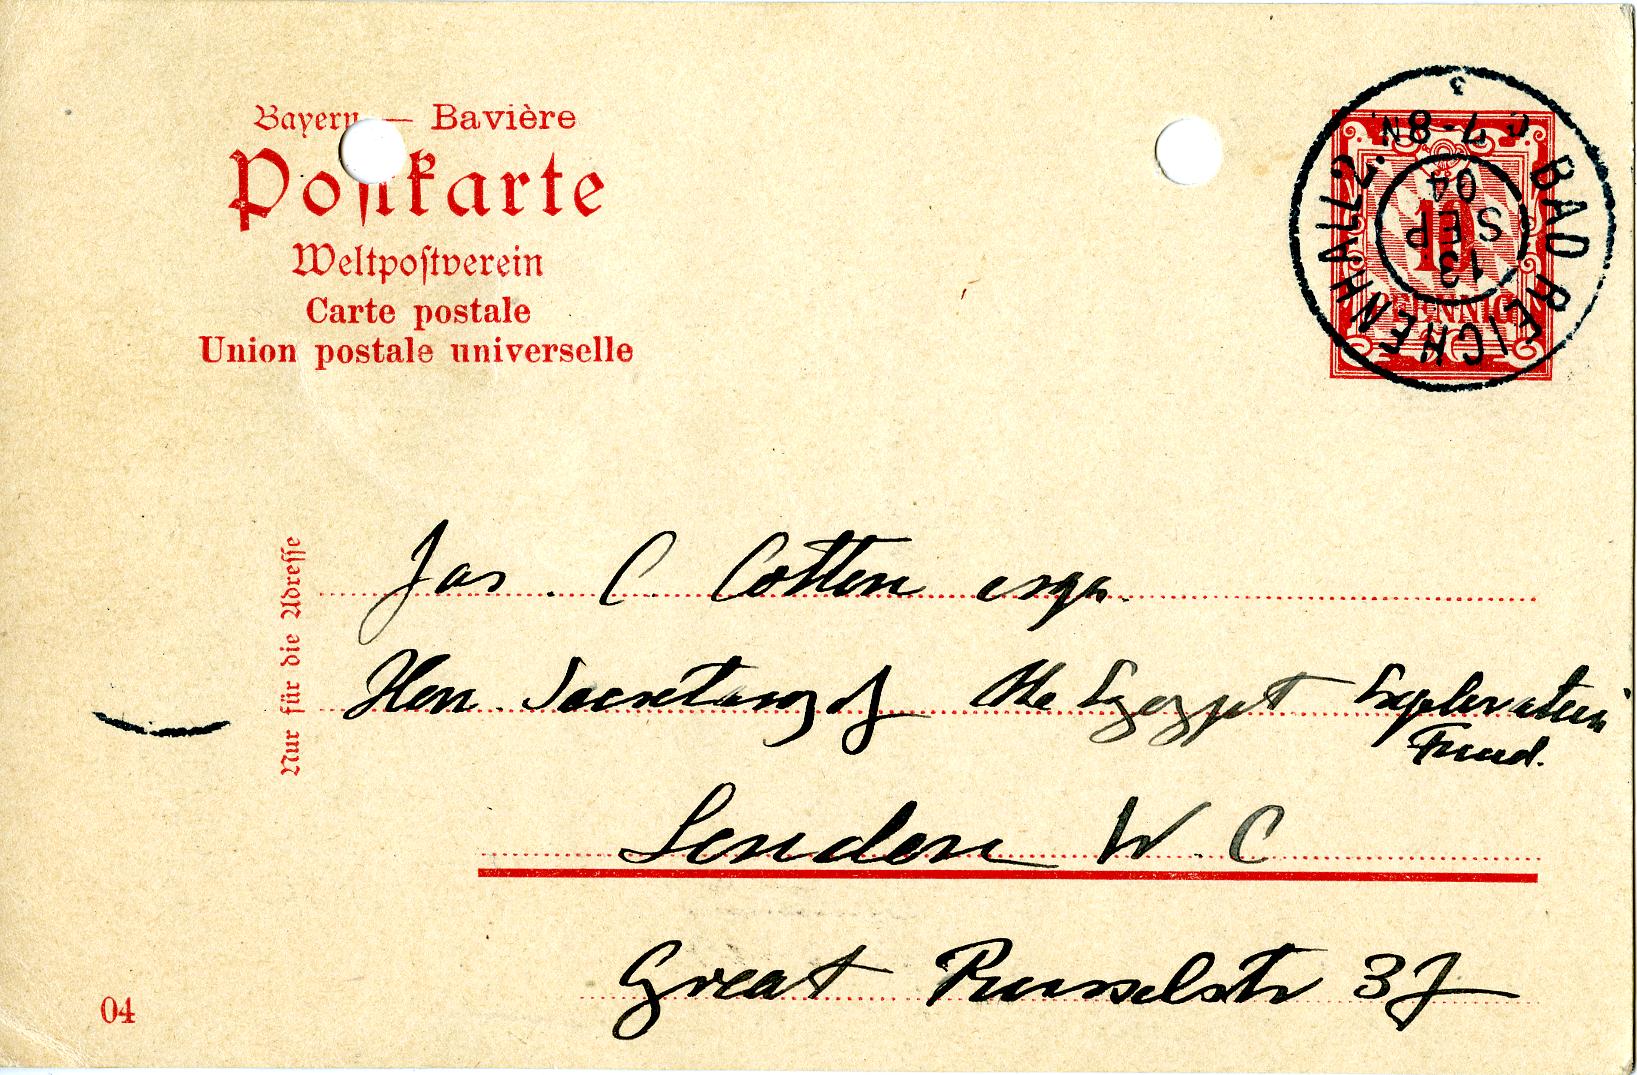 Bayern — Bavière
Postkarte
Weltpostverein
Carte postale
Union postale universelle
BAD REICHENHALL 2.
13
SEP
04
7-8 N.
3
10
PFENNIG
Nur für die Adresse
Jas. C. Cotton esqu.
Hon. Secretary of the Egypt Exploration
Fund.
London W. C
Great Russelstr 37
04